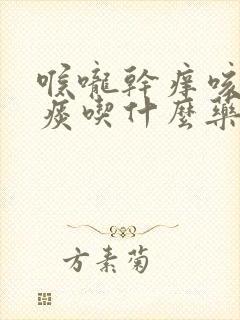 喉嚨幹痒咳
痰喫什麼藥
方素菊